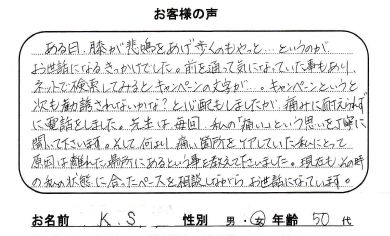 お客様の声
ある日、膝が悲鳴をあげ歩くのもやっと…というのが
お世話になるきっかけでした。前を通って気になっていた事もあり
ネットで検索してみるとキャンペーンの文字が…。キャンペーンというと
次も勧誘されないかな?と心配もしましたが痛みに耐えられず
に電話をしました。先生は毎回、私の「痛い」という思いを丁寧に
聞いて下さいます。そして何より、痛い箇所をケアしていた私にとって
原因は離れた場所にあるという事を教えて下さいました。現在もその時
の私の状態に合ったペースを相談しながらお世話になっています。
お名前 K.S. 性別 男・女 年齢 50 代